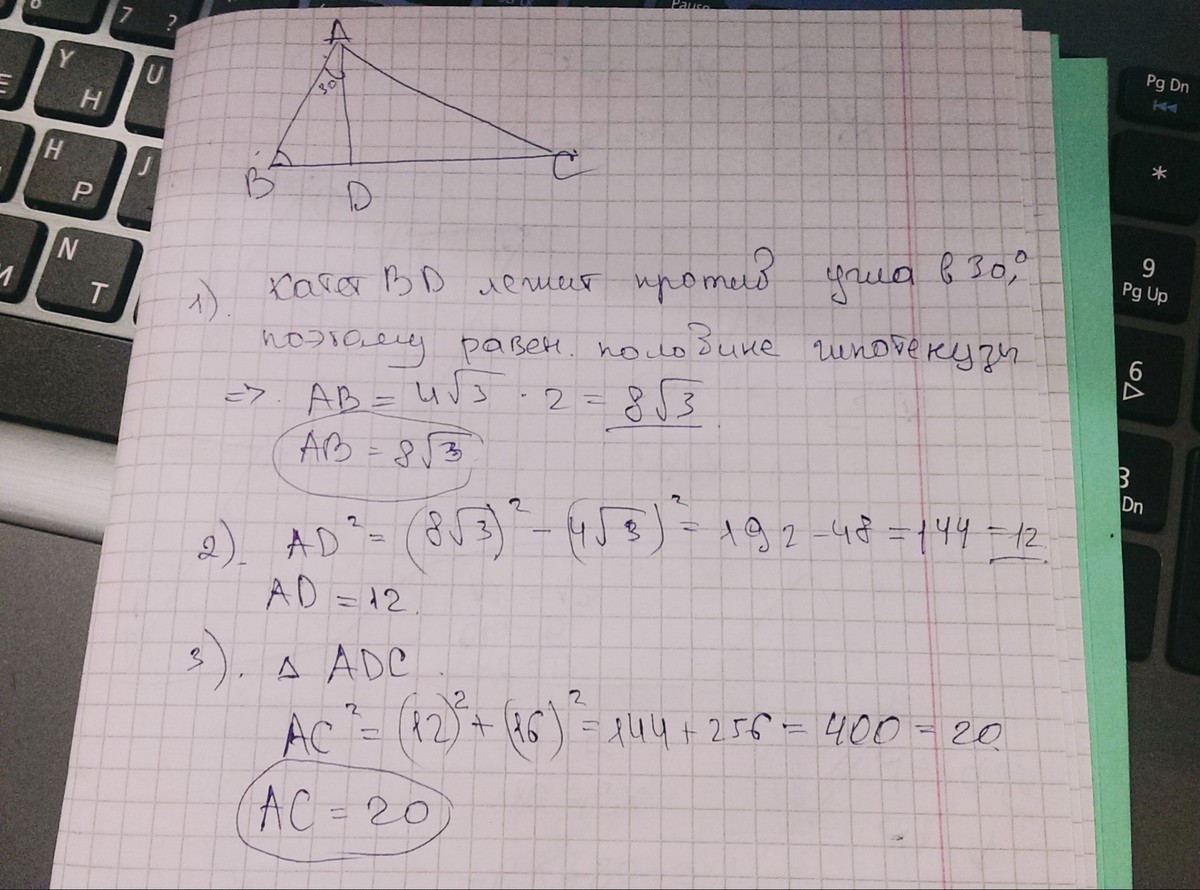 Pause
6
7 ?
Y
Н
U
E
H
Р
J
N
Т
И
Pg Dn
*
9
Pg Up
6
3
Dn
A
30
B
D
C
1). Катет BD лежит против угла в 30°,
поэтому равен половине гипотенузы
=> AB = 4√3 · 2 = 8√3
AB = 8√3
2). AD² = (8√3)² - (4√3)² = 192 - 48 = 144 = 12
AD = 12.
3). Δ ADC.
AC² = (12)² + (16)² = 144 + 256 = 400 = 20
AC = 20